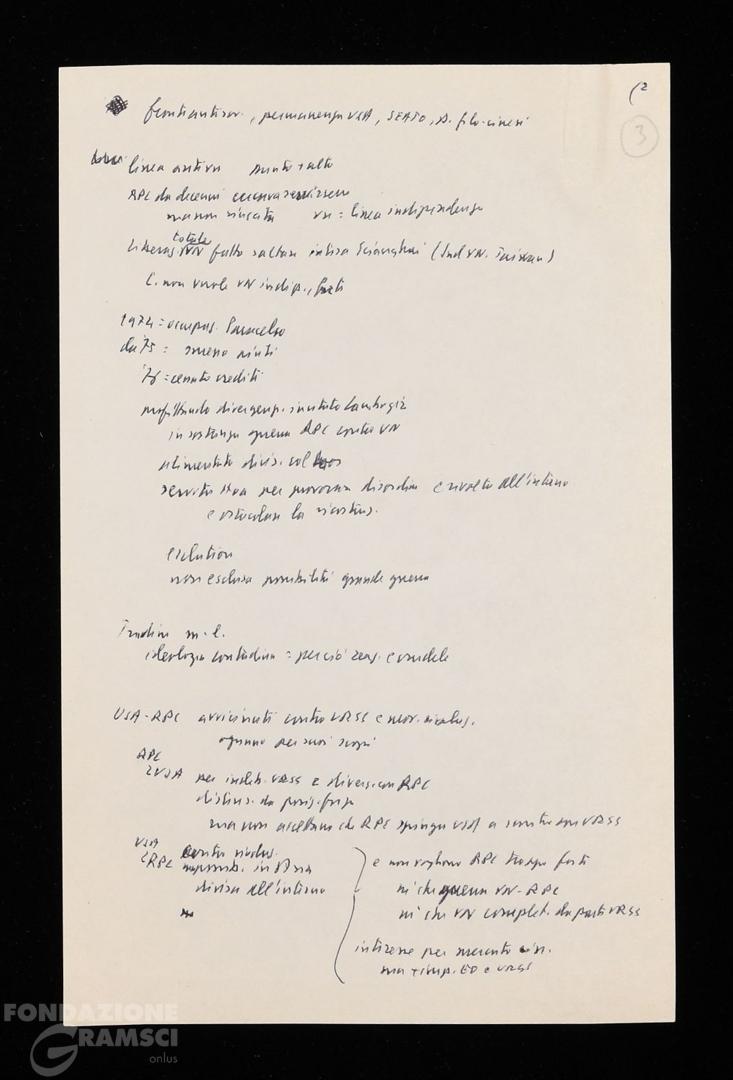 (2
3
fronti antisov., permanenza USA, SEATO, p. filo-cinesi
linea antivn punto salto
RPC da decenni
ma non riuscita vn = linea indipendenza
totale
Liberaz. VN fatto saltare intesa Scianghai (Sud VN. Taiwan)
C. non vuole VN indip., forti
1974 = occupaz. Paracelso
da '75 = meno aiuti
'76 = cessato crediti
approfittando divergenze. Cambogia
in sostanza guerra RPC contro VN
alimentato divis. col Laos
servito Hoa per provocare disordini e rivolte all'interno
e ostacolare la ricostruz.
escalation
non esclusa possibilità grande guerra
Tradim. m-l.
ideologia contadina = perciò reaz. e crudele
USA-RPC avvicinati contro URSS e mov. rivoluz.
ognuno per suoi scopi
RPC
USA per indeb. URSS e divers. con RPC
distinz. da posiz. forza
ma non accettano che RPC spinga USA a scontro con URSS
USA
RPC contro rivoluz.
rappresent. in Asia
divisa all'interno
e non vogliono RPC troppo forte
né che guerra VN-RPC
né che VN complet. da parte URSS
interesse per mercato cin.
ma + imp. EO e URSS
FONDAZIONE
GRAMSCI
onlus